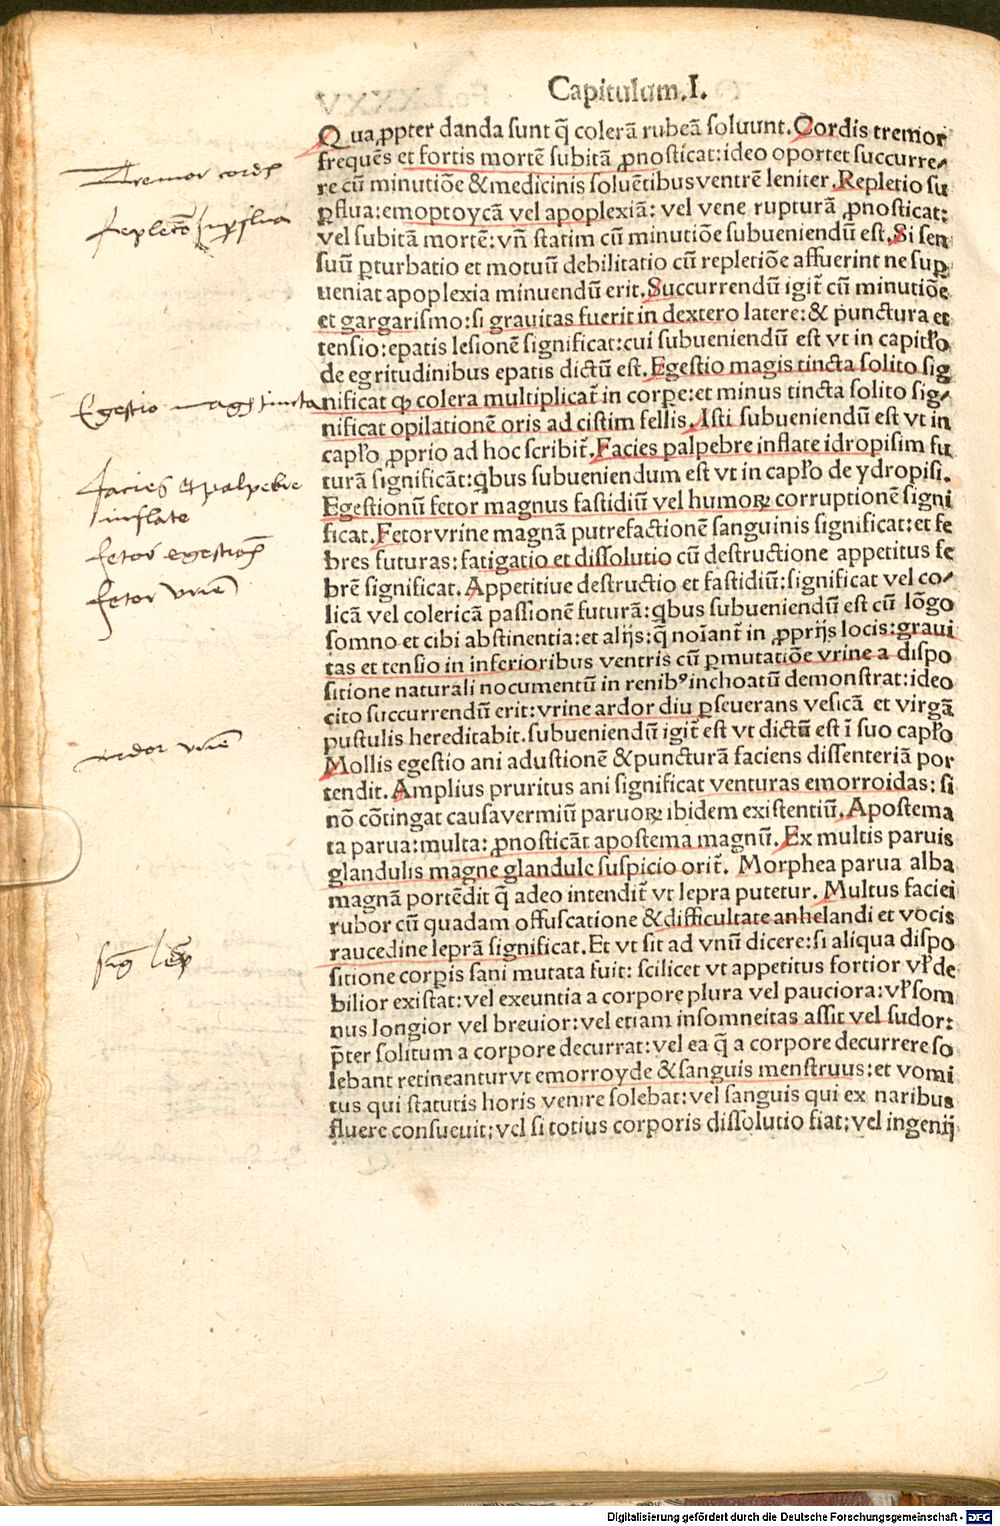 Capitulum.I.
Qua ꝓpter danda sunt q̃ colerã rubeã soluunt. Cordis tremor
frequẽs et fortis mortẽ subitã ꝓnosticat: ideo oportet succurre-
re cũ minutiõe & medicinis soluẽtibus ventrẽ leniter. Repletio su
ꝑflua: emoptoycã vel apoplexiã: vel vene rupturã ꝓnosticat:
vel subitã mortẽ: vñ statim cũ minutiõe subueniendũ est. Si sen
suũ ꝑturbatio et motuũ debilitatio cũ repletiõe affuerint ne suꝑ
ueniat apoplexia minuendũ erit. Succurrendũ igit̃ cũ minutiõe
et gargarismo: si grauitas fuerit in dextero latere: & punctura et
tensio: epatis lesionẽ significat: cui subueniendũ est vt in capitło
de egritudinibus epatis dictũ est. Egestio magis tincta solito sig
nificat ꝙ colera multiplicat̃ in corpe: et minus tincta solito sig-
nificat opilationẽ oris ad cistim fellis. Isti subueniendũ est vt in
capło ꝓprio ad hoc scribit̃. Facies palpebre inflate idropisim fu
turã significãt: q̃bus subueniendum est vt in capło de ydropisi.
Egestionũ fetor magnus fastidiũ vel humoꝝ corruptionẽ signi
ficat. Fetor vrine magnã putrefactionẽ sanguinis significat: et fe
bres futuras: fatigatio et dissolutio cũ destructione appetitus fe
brẽ significat. Appetitiue destructio et fastidiũ: significat vel co-
licã vel colericã passionẽ futurã: q̃bus subueniendũ est cũ lõgo
somno et cibi abstinentia: et alijs: q̃ noĩant̃ in ꝓprijs locis: graui
tas et tensio in inferioribus ventris cũ ꝑmutatiõe vrine a dispo
sitione naturali nocumentũ in renibꝰ inchoatũ demonstrat: ideo
cito succurrendũ erit: vrine ardor diu ꝑseuerans vesicã et virgã
pustulis hereditabit. subueniendũ igit̃ est vt dictũ est ĩ suo capło
Mollis egestio ani adustionẽ & puncturã faciens dissenteriã por
tendit. Amplius pruritus ani significat venturas emorroidas: si
nõ cõtingat causa vermiũ paruoꝝ ibidem existentiũ. Apostema
ta parua: multa: ꝓnosticãt apostema magnũ. Ex multis paruis
glandulis magne glandule suspicio orit̃. Morphea parua alba
magnã portẽdit q̃ adeo intendit̃ vt lepra putetur. Multus faciei
rubor cũ quadam offuscatione & difficultate anhelandi et vocis
raucedine leprã significat. Et vt sit ad vnũ dicere: si aliqua dispo
sitione corꝑis sani mutata fuit: scilicet vt appetitus fortior vł de
bilior existat: vel exeuntia a corpore plura vel pauciora: vł som
nus longior vel breuior: vel etiam insomneitas assit vel sudor:
p̃ter solitum a corpore decurrat: vel ea q̃ a corpore decurrere so
lebant retineantur vt emorroyde & sanguis menstruus: et vomi
tus qui statutis horis venire solebat: vel sanguis qui ex naribus
fluere consueuit; vel si totius corporis dissolutio fiat; vel ingenij
Tremor cordis
Replecõ supflua
Egestio magis tincta
facies et palpebre
inflate
fetor egestionis
fetor vrine
ardor vrine
sig lep
Digitalisierung gefördert durch die Deutsche Forschungsgemeinschaft - DFG